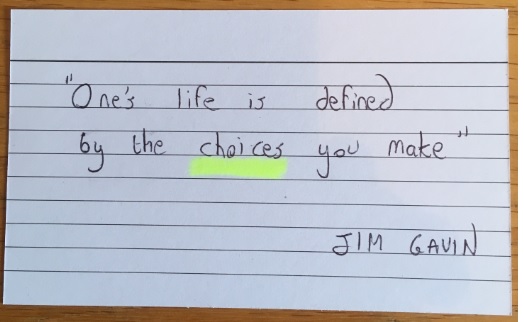 "One's life is defined
by the choices you make"
JIM GAVIN